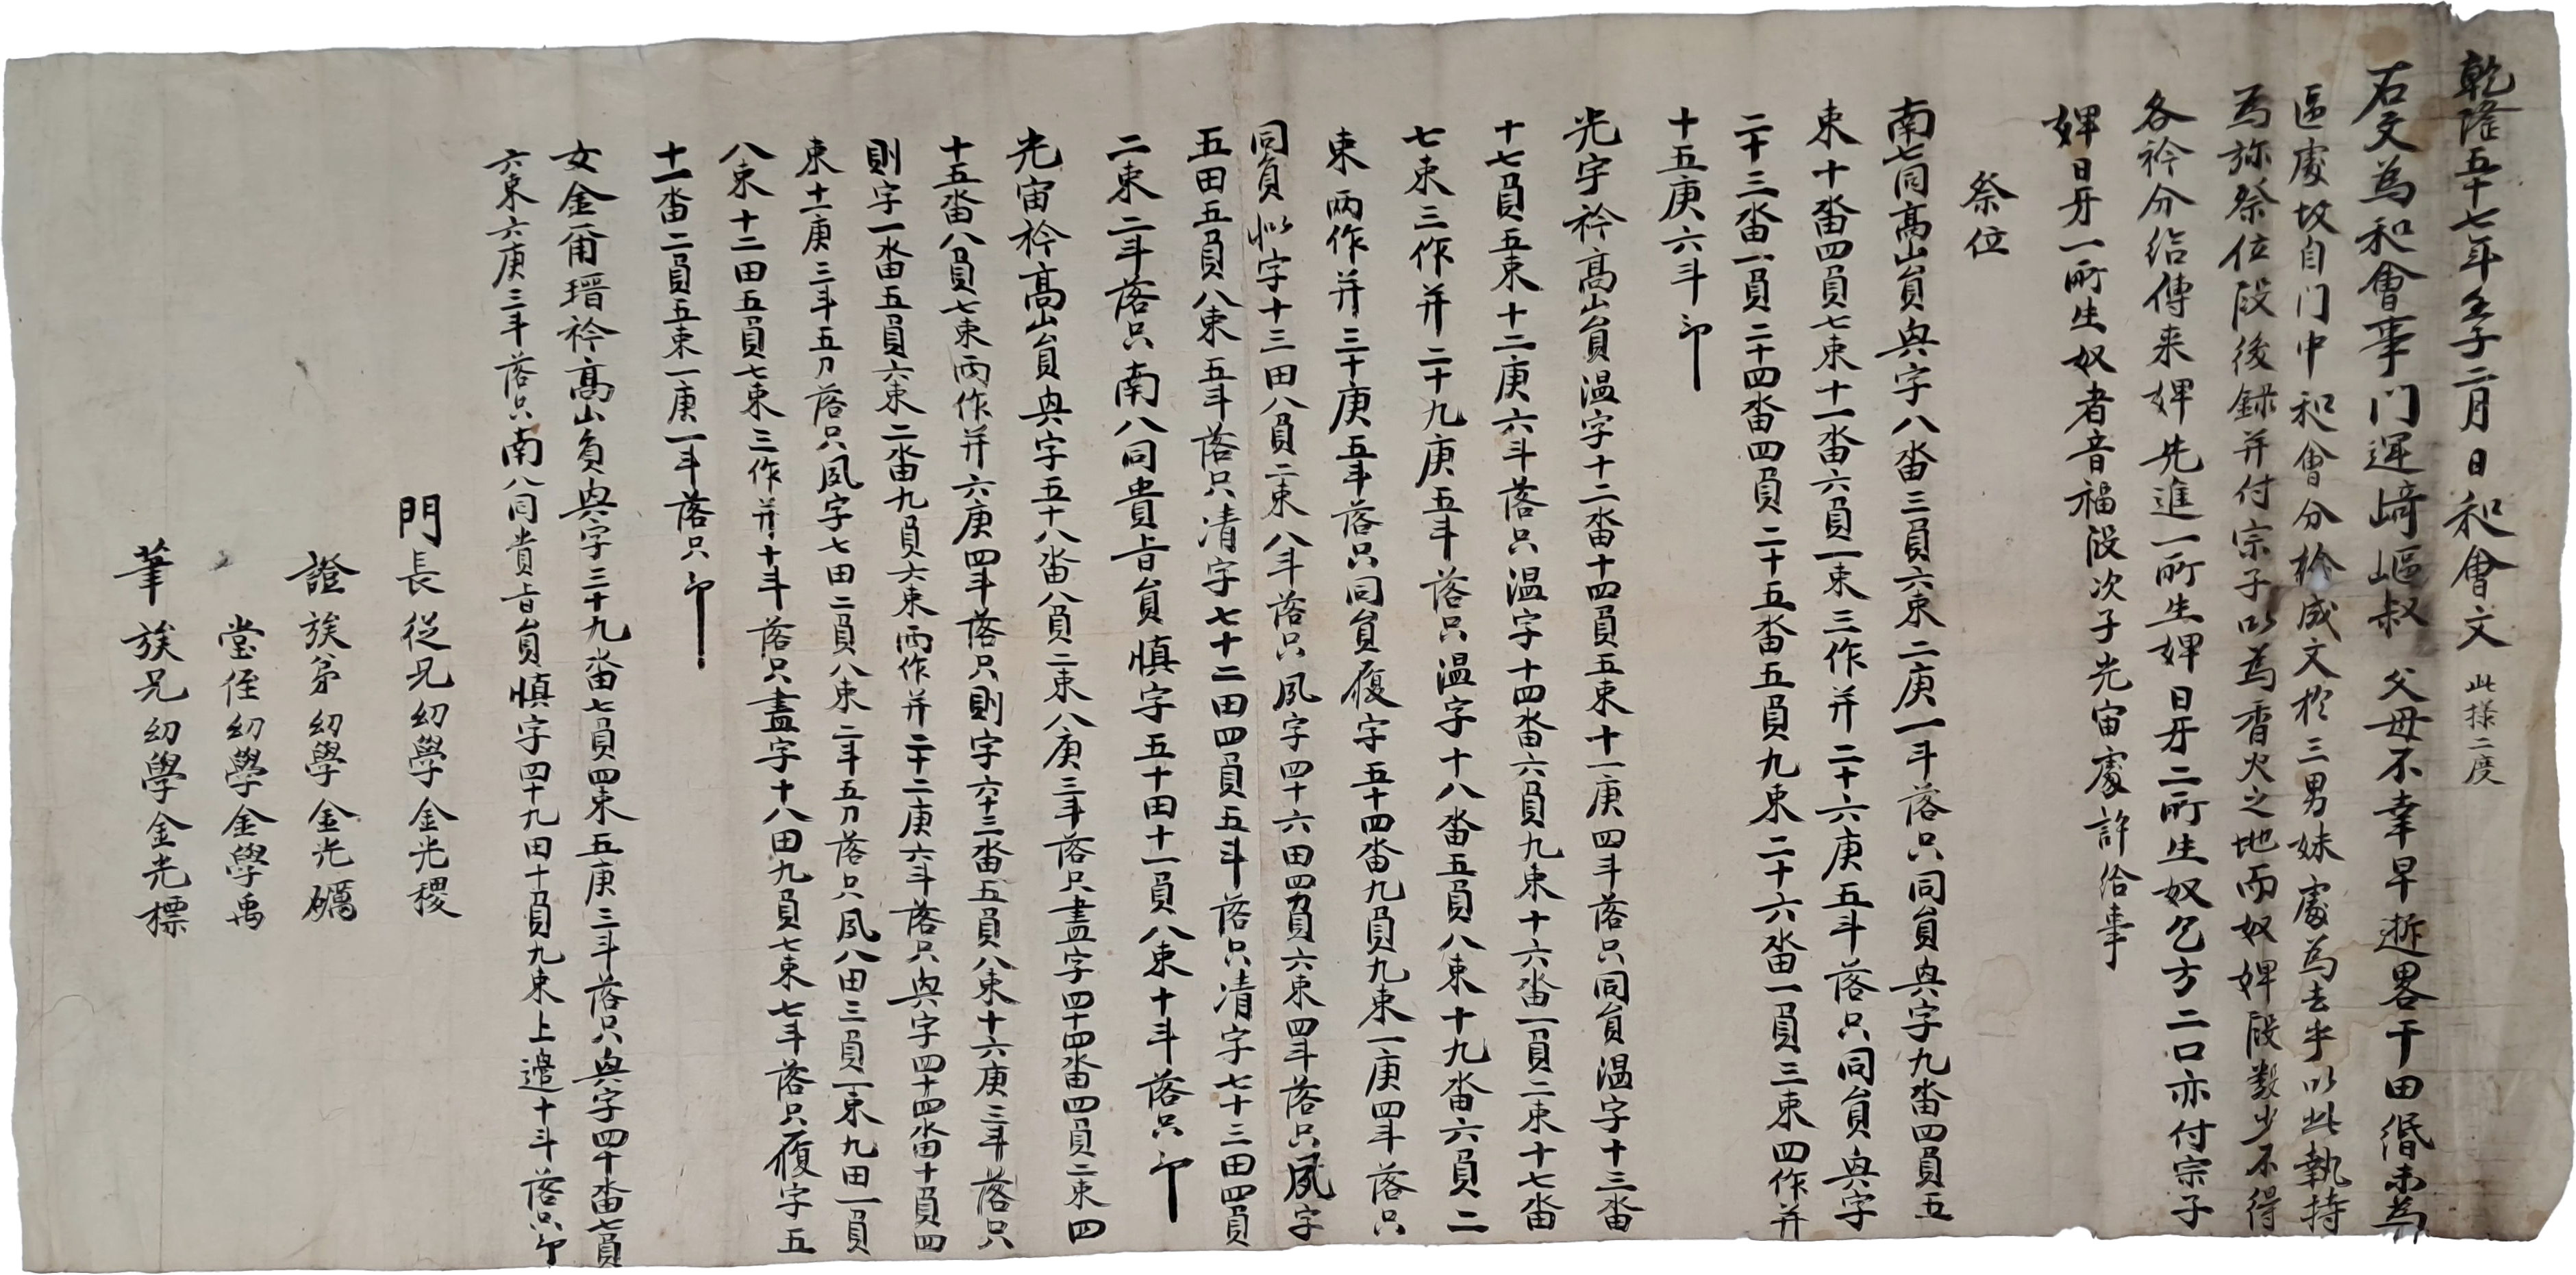 乾隆五十七年壬子二月日和會文 此樣二度
右文為和會事門運崎嶇叔父母不幸早逝畧干田緡未為
區處故自门中和會分衿成文於三男妹處為去乎以此執持
為旀祭位段後錄并付宗子以為香火之地而奴婢段數少不得
各衿分給傳来婢先進一所生婢日牙二所生奴乞方二口亦付宗子
婢日牙一所生奴者音福段次子光宙處許給事
祭位
南七同髙山員與字八畓三員六束二庚一斗落只同員與字九畓四員五
束十畓四員七束十一畓六員一束三作并二十六庚五斗落只同員與字
二十三畓一員二十四畓四員二十五畓五員九束二十六畓一員三束四作并
十五庚六斗印
光宇衿髙山員温字十二畓十四員五束十一庚四斗落只同員温字十三畓
十七員五束十二庚六斗落只温字十四畓六員九束十六畓一員二束十七畓
七束三作并二十九庚五斗落只温字十八畓五員八束十九畓六員二
束兩作并三十庚五斗落只同員履字五十四畓九員九束一庚四斗落只
同員似字十三田八員二束八斗落只夙字四十六田四員六束四斗落只夙字
五田五員八束五斗落只凊字七十二田四員五斗落只凊字七十三田四員
二束二斗落只南八同貴旨員慎字五十田十一員八束十斗落只印
光宙衿髙山員與字五十八畓八員二束八庚三斗落只盡字四十四畓四員二束四
十五畓八員七束兩作并六庚四斗落只則字六十三畓五員八束十六庚三斗落只
則字一畓五員六束二畓九員六束兩作并二十二庚六斗落只與字四十四畓十員四
束十一庚三斗五刀落只夙字七田二員八束二斗五刀落只夙八田三員一束九田一員
八束十二田五員七束三作并十斗落只盡字十八田九員七束七斗落只履字五
十一畓二員五束一庚一斗落只印
女金甭瑨衿髙山員與字三十九畓七員四束五庚三斗落只與字四十畓七員
六束六庚三斗落只南八同貴旨員慎字四十九田十員九束上邉十斗落只印
門長從兄幼學金光稷
證族弟幼學金光礪
堂侄幼學金學禹
筆族兄幼學金光標